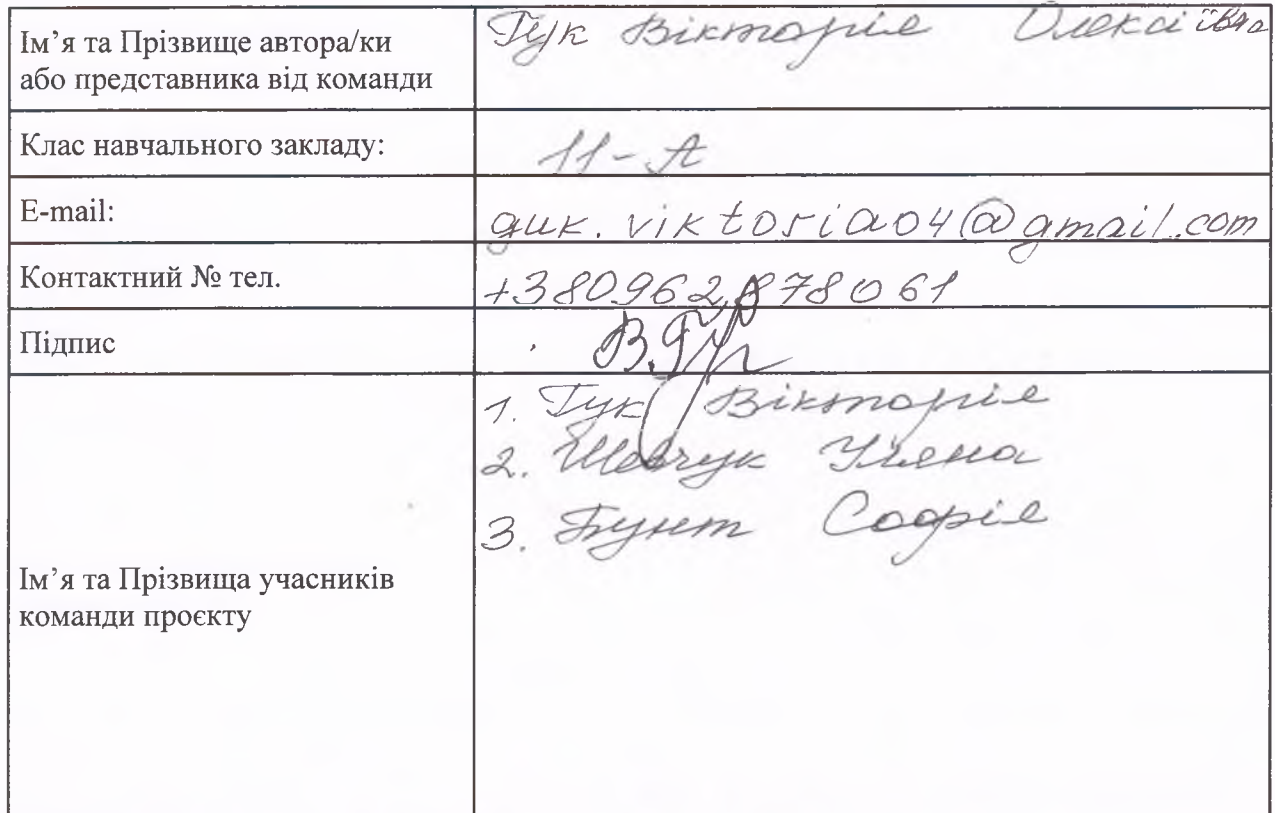 Ім’я та Прізвище автора/ки
або представника від команди
Гук Вікторія Олексіївна
Клас навчального закладу:
11-А
E-mail:
guk.viktoria04@gmail.com
Контактний № тел.
+380962878061
Підпис
В.Гук
Ім’я та Прізвища учасників
команди проєкту
1. Гук Вікторія
2. Шевчук Уляна
3. Бунт Софія